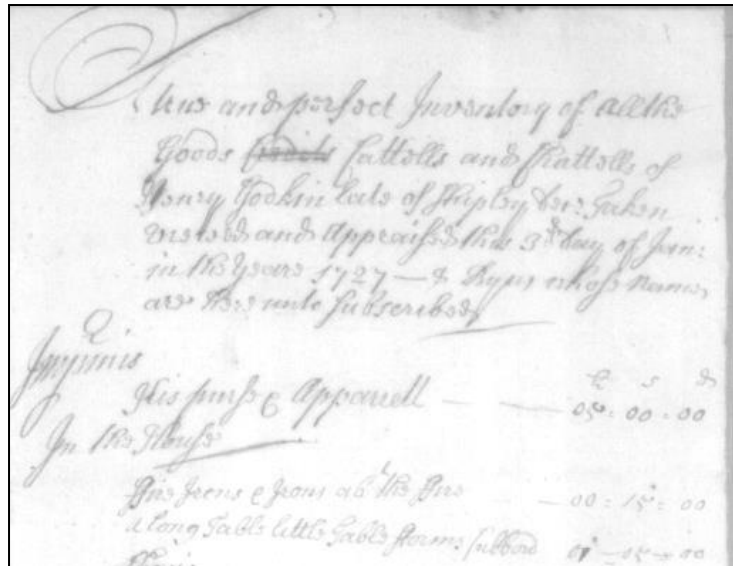 A true and perfect Inventory of all the
Goods Credits Cattells and Chattells of
Henry Godkin late of Shipley Taken
viewed and Appraised this 3d day of Jan:
in the yeare 1727 — whose names
are here unto subscribed
Imprimis
£ s d
His purse & Apparrell — — 05 : 00 : 00
In the House
Fire Irons & Irons abt the fire — 00 : 15 : 00
A long Table little Table fforms Cubbord 01 — 05 — 00